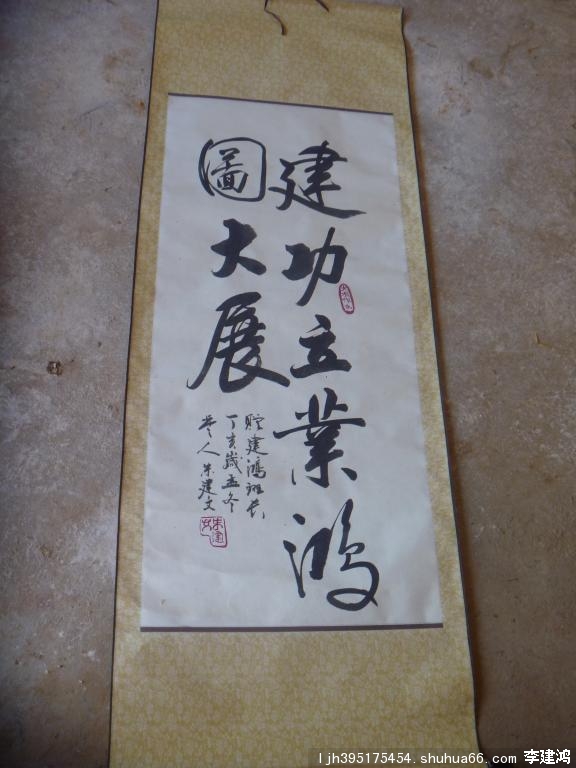 建功立业鸿
圖大展
贈建鴻班長
丁亥歲孟冬
人朱建文
ljh395175454.shuhua66.com 李建鸿